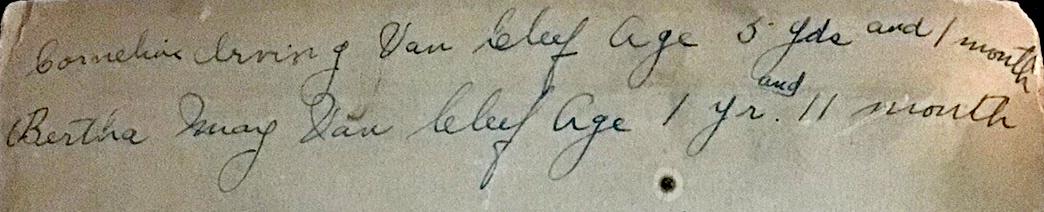 Cornelius Irving Van Cleef Age 5 yds and 1 month
Bertha May Van Cleef Age 1 yr. and 11 month